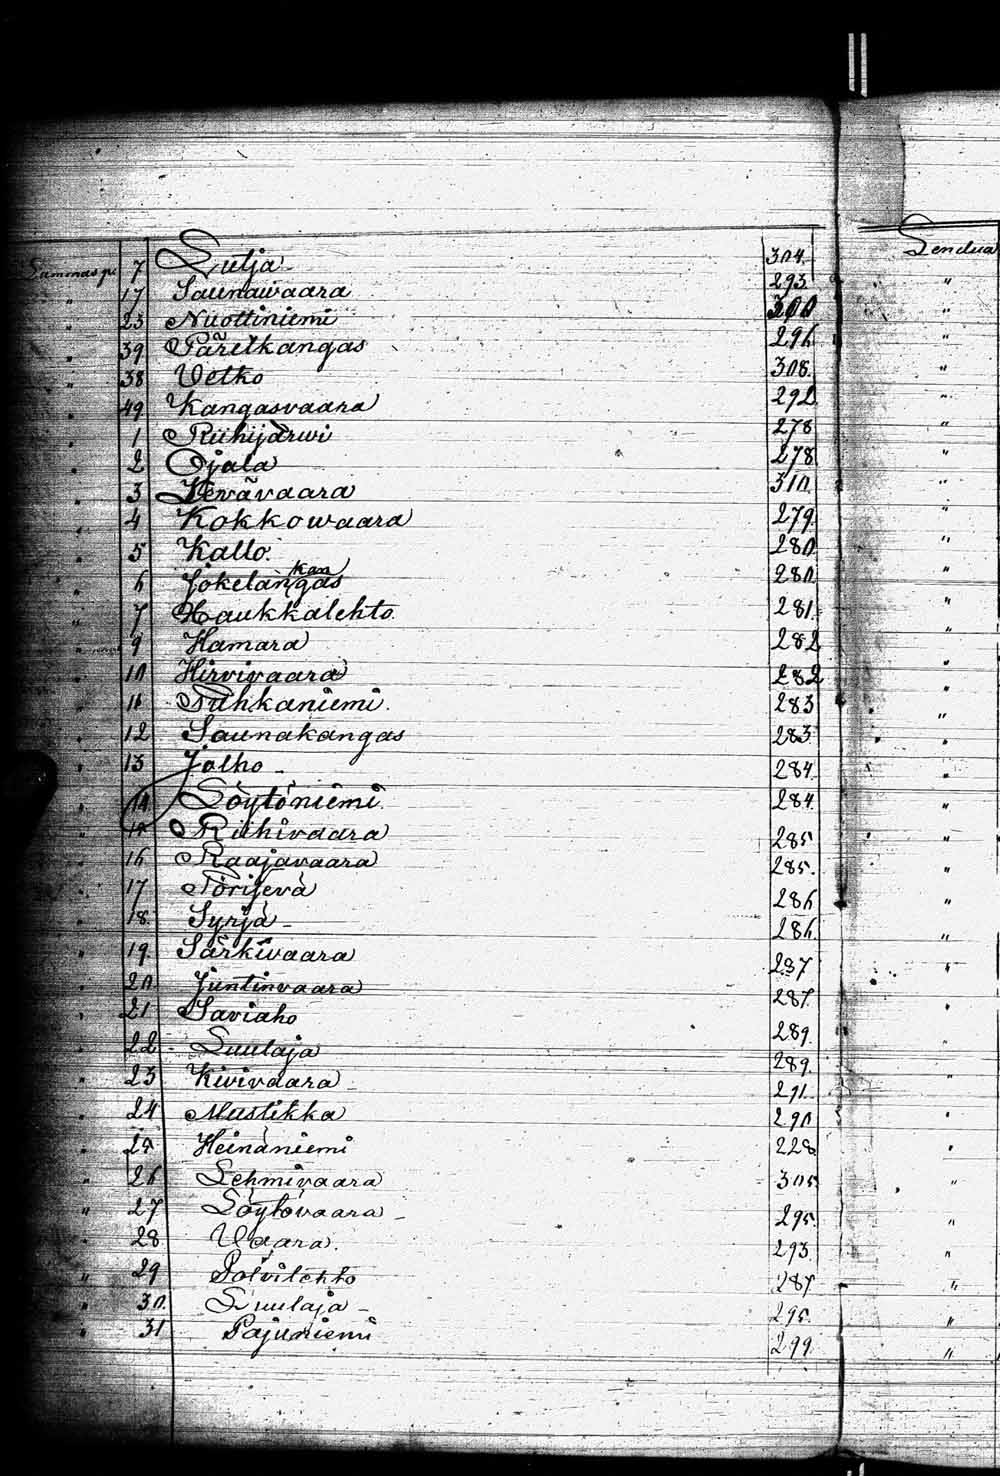 7 Lutja 304.
" 17 Saunawaara 293.
" 23 Nuottiniemi 300
" 39 Päretkangas 296
" 38 Vetko 308.
" 49 Kangasvaara 292
" 1 Riihijärwi 278
" 2 Ojala 278
" 3 Kevävaara 310.
" 4 Kokkowaara 279.
" 5 Kallo. 280
kan
" 6 Jokelangas 280
" 7 Haukkalehto. 281.
" 9 Hamara 282
" 10 Hirvivaara 282
" 11 Tuhkaniemi. 283
" 12 Saunakangas 283
" 13 Jolho - 284
" 14 Löytöniemi. 284.
" 15 Riihivaara 285
" 16 Raajavaara 285.
" 17 286
" 18. Syrjä - 286.
" 19. Särkivaara 287
" 20. Juntinvaara 287.
" 21 Saviaho 289.
" 22 - Luulaja 289.
" 23 Kivivaara 291.
" 24 Mustikka 290
" 25 Heinäniemi 228
" 26 Lehmivaara 305
" 27 Löytövaara - 295.
" 28 Vaara. 293
" 29 Polvilehto 287
" 30. Luulaja - 295.
" 31 Pajuniemi 299.
Lendua